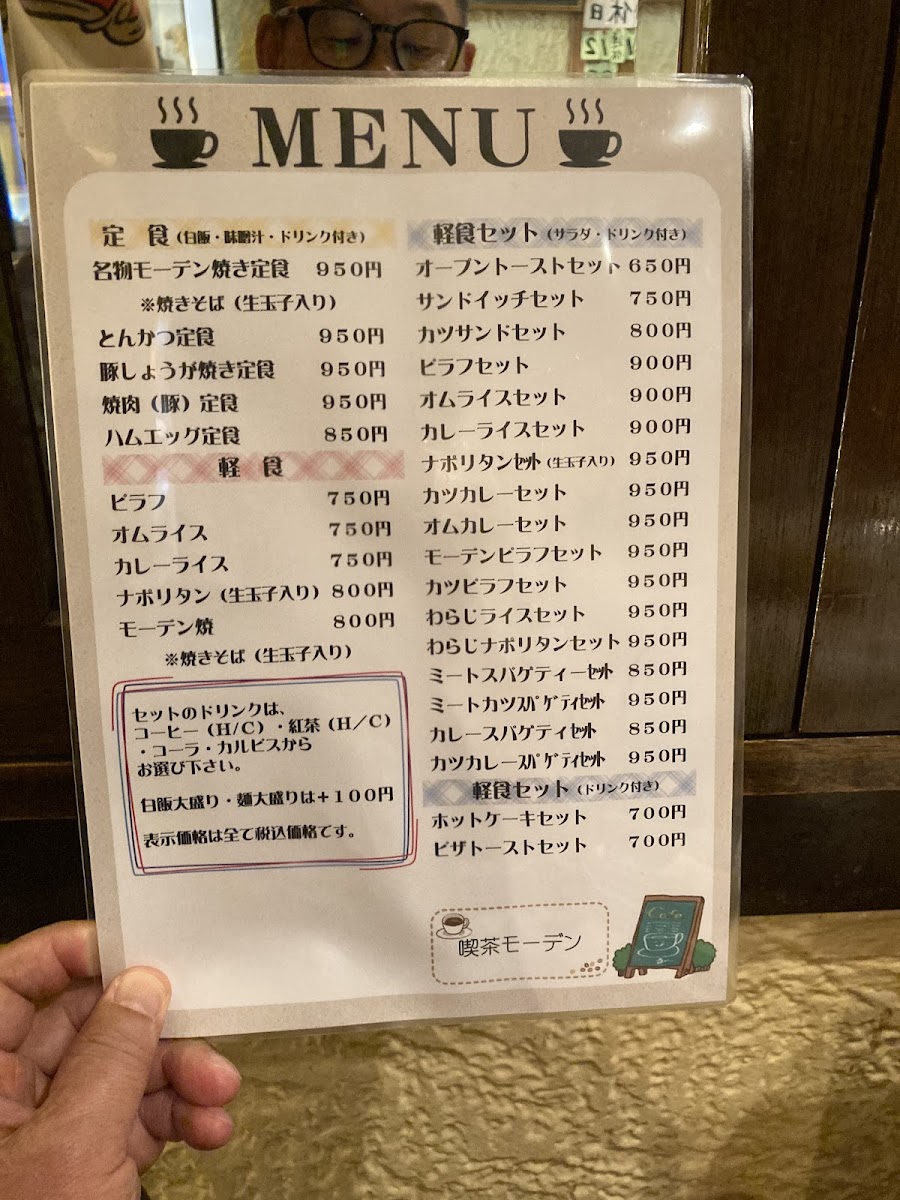 MENU
定 食 (白飯・味噌汁・ドリンク付き)
名物モーデン焼き定食 950円
※焼きそば (生玉子入り)
とんかつ定食 950円
豚しょうが焼き定食 950円
焼肉 (豚) 定食 950円
ハムエッグ定食 850円
軽 食
ピラフ 750円
オムライス 750円
カレーライス 750円
ナポリタン (生玉子入り) 800円
モーデン焼 800円
※焼きそば (生玉子入り)
セットのドリンクは、
コーヒー (H/C) ・紅茶 (H/C)
・コーラ・カルピスから
お選び下さい。
白飯大盛り・麺大盛りは+100円
表示価格は全て税込価格です。
軽食セット (サラダ・ドリンク付き)
オープントーストセット 650円
サンドイッチセット 750円
カツサンドセット 800円
ピラフセット 900円
オムライスセット 900円
カレーライスセット 900円
ナポリタンセット (生玉子入り) 950円
カツカレーセット 950円
オムカレーセット 950円
モーデンピラフセット 950円
カツピラフセット 950円
わらじライスセット 950円
わらじナポリタンセット 950円
ミートスパゲティーセット 850円
ミートカツスパゲティセット 950円
カレースパゲティセット 850円
カツカレースパゲティセット 950円
軽食セット (ドリンク付き)
ホットケーキセット 700円
ピザトーストセット 700円
喫茶モーデン
Cafe
休日
12